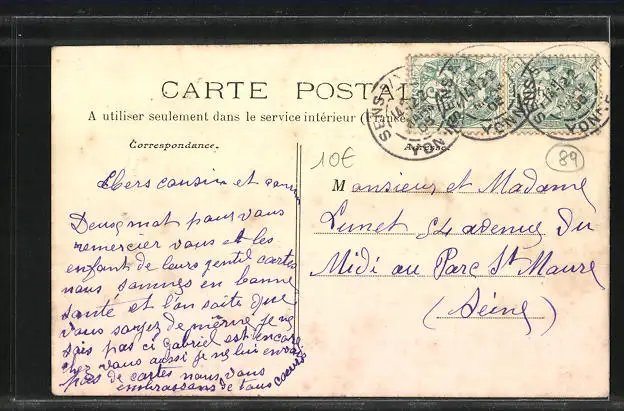 CARTE POSTALE
A utiliser seulement dans le service intérieur (France
Correspondance.
Adresse.
SENS
YONNE
10€
89
Chers cousin et cousine
Deux mot pour vous
remercier vous et les
enfant de leurs gentil cartes
nous sommes en bonne
santé et l'on soite que
vous soyez de même je ne
sais pas ci Gabriel est encore
chez vous aussi je ne lui envoie
pas de cartes nous vous
embrassons de tous coeurs
Monsieur et Madame
Lunet 54 avenue du
Midi au Parc St Maure
(Seine)